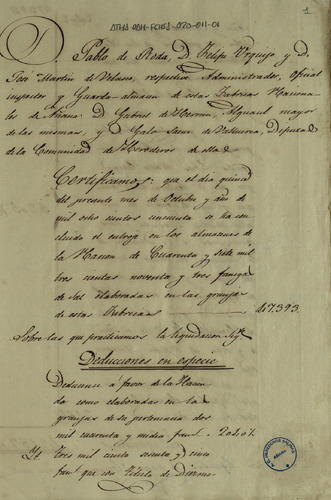 ATHA-DAH-FCHSA-020-011-01
1
D. Pablo de Roda, D. Felipe Urquijo y D.
José Martin de Velasco, respectivo Administrador, Oficial
inspector y Guarda-almacen de estas Fabricas Naciona
les de Añana: D. Gabriel de Herran, Alguacil mayor
de las mismas, y D. Galo Saenz de Valluerca, Diputado
de la Comunidad de Herederos de ellas
Certificamos: que el dia quince
del presente mes de Octubre y año de
mil ocho cientos cincuenta se ha con
cluido el entrojo en los almacenes de
la Nacion de Cuarenta y siete mil
tres cientas noventa y tres fanegas
de sal elaboradas en las granjas
de estas Fabricas 47.393.
Sobre las que practicamos la liquidacion sigte
Deducciones en especie
Deducense á favor de la Hacien
da como elaboradas en las
granjas de su pertenencia dos
mil cuarenta y media fans.
Yt. tres mil ciento sesenta y cinco
fans que con titulo de Diezmo